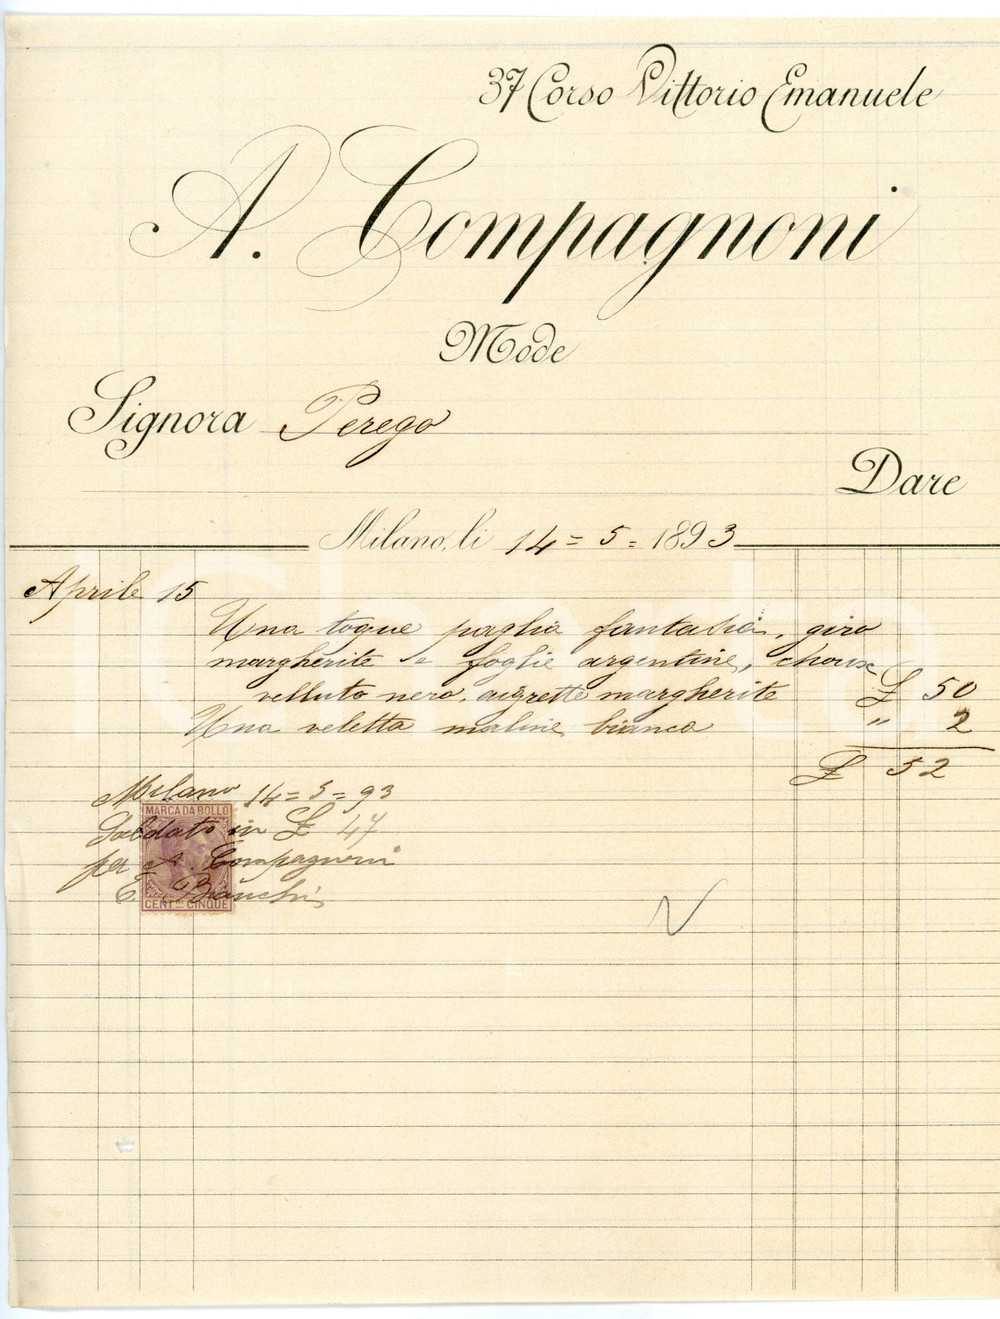 37 Corso Vittorio Emanuele
A. Compagnoni
Mode
Signora Perego
Dare
Milano, li 14 = 5 = 1893
Aprile 15
Una toque paglia fantasia, giro
margherite e foglie argentine, choux
velluto nero, aigrette margherite £ 50
Una veletta maline bianca " 2
£ 52
Milano 14 = 5 = 93
MARCA DA BOLLO
Saldato in £ 47
per A. Compagnoni
E. Bianchi
CENT. CINQUE